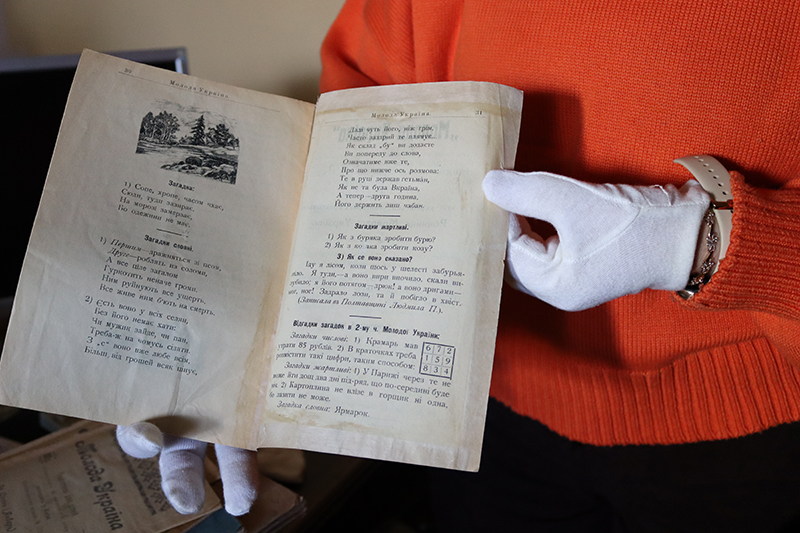 30
Молода Україна.
Загадка:
1) Сопе, хропе, часом чхає,
Сюди, туди зазирає.
На морозі замерзає,
Бо одежини не має.
Загадки словні.
1) Перше— зражняться зі псом,
Друге—роблять из соломи,
А все ціле загалом
Гуркотить неначе громи.
Ним руйнують все ущерть,
Все живе ним б'ють на смерть.
2) Єсть воно у всіх селян,
Без його немає хати:
Чи мужик зайде, чи пан,
Треба-ж на чомусь сідати.
З „є" воно вже любе всім,
Більш від грошей всяк цінує,
Молода Україна.
31
Далі чуть його, ніж грім,
Часто заздрий те плямує.
Як склад „бу" ви додасте
Ви попереду до слова,
Означатиме вже те,
Про що нижче ось розмова:
Те в руці держав гетьман,
Як не та була Вкраїна,
А тепер —друга година,
Його держить лиш чабан.
Загадки жартливі.
1) Як з буряка зробити бурю?
2) Як з козака зробити козу?
3) Як се воно сказано?
Іду я лісом, коли щось у шелесті забурья-
нило. Я туди,—а воно верп вночило. скали ви-
рубило; я його потягом—зрюк! а воно зригами—
ниг, ног! Задрало лози, та й побігло в хвіст.
(Записала в Полтавщині Людмила П.).
Відгадки загадок в 2-му ч. Молодої Украіни:
Загадки числові: 1) Крамарь мав
страти 85 рублів. 2) В краточках треба
розмостити такі цифри, таким способом:
6 7 2
1 5 9
8 3 4
Загадки жартливі: 1) У Парижі через те не
може йти дощ два дні під-ряд, що по-середині буде
ніч. 2) Картоплина не влізе в горщик ні одна,
бо лазити не може.
Загадка словна: Ярмарок.
Молода Україна